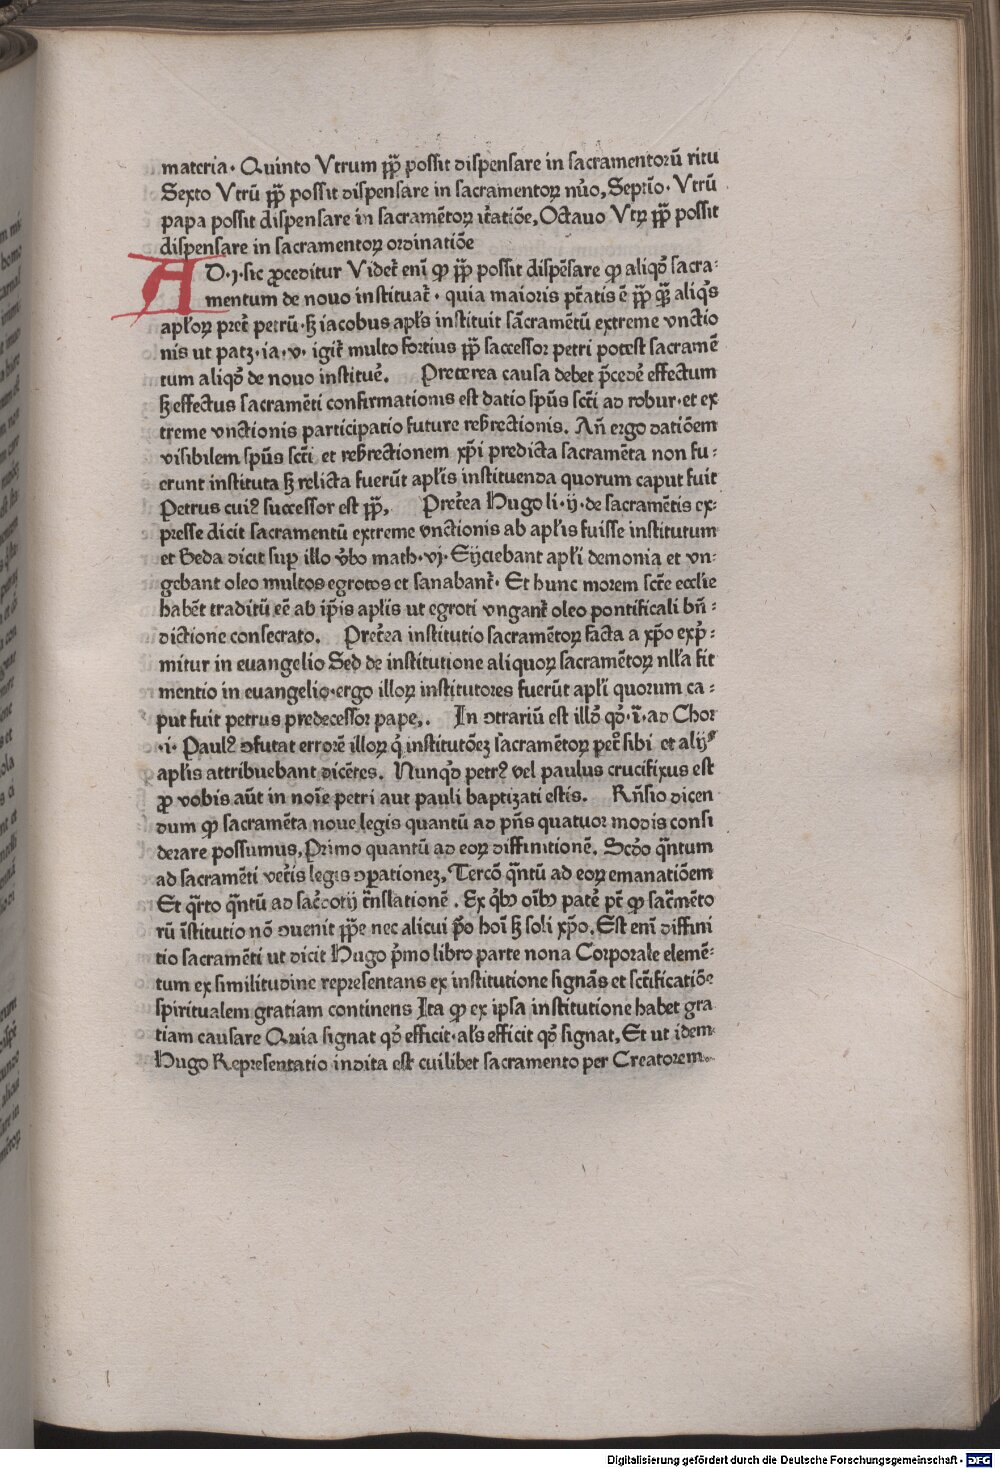 materia. Quinto Vtrum pp̄ possit dispensare in sacramentorū ritu
Sexto Vtrū pp̄ possit dispensare in sacramentoꝝ nūo, Septīo. Vtrū
papa possit dispensare in sacramētoꝝ iťatiōe, Octauo Vtꝝ pp̄ possit
dispensare in sacramentoꝝ ordinatiōe
AD .j. sic ꝓceditur Videť enī ꝙ pp̄ possit dispēsare ꝙ aliqđ sacra⸗
mentum de nouo instituať. quia maioris ptatis ē pp̄ ꝗ̄ aliqs
apłoꝝ preť petrū. ꝫ iacobus apłs instituit sācramētū extreme vnctio
nis ut patꝫ. ia. v. igiť multo fortius pp̄ successor petri potest sacramē
tum aliqđ de nouo instituē. Preterea causa debet p̄cedē effectum
ꝫ effectus sacramēti confirmationis est datio spūs scti ad robur. et ex
treme vnctionis participatio future resrectionis. An̄ ergo datiōem
visibilem spūs scti et resrectionem xp̄i predicta sacramēta non fu⸗
erunt instituta ꝫ relicta fuerūt apłis instituenda quorum caput fuit
Petrus cuiꝰ successor est pp̄, Preťea Hugo li. ij. de sacramētis ex⸗
presse dicit sacramentū extreme vnctionis ab apłis fuisse institutum
et Beda dicit suꝑ illo v̓bo math. vj. Eijciebant apłi demonia et vn⸗
gebant oleo multos egrotos et sanabanť. Et hunc morem scte ecclie
habēt traditū eē ab ip̄is apłis ut egroti vnganť oleo pontificali bn̄⸗
dictione consecrato. Preťea institutio sacramētoꝝ facta a xp̄o exp̓⸗
mitur in euangelio Sed de institutione aliquoꝝ sacramētoꝝ nłła fit
mentio in euangelio. ergo illoꝝ institutores fuerūt apłi quorum ca⸗
put fuit petrus predecessor pape,. In ꝯtrariū est illđ qđ. ī. ad Chor
.i. Paulꝰ ꝯfutat errorē illoꝝ q̓ institutōeꝫ sacramētoꝝ peť sibi et alijs
apłis attribuebant dicētes. Nunqđ petrꝰ vel paulus crucifixus est
ꝓ vobis aūt in noīe petri aut pauli baptizati estis. Rn̄sio dicen
dum ꝙ sacramēta noue legis quantū ad pn̄s quatuor modis consi
derare possumus, Primo quantū ad eoꝝ diffinitionē. Scdo qntum
ad sacramēti veťis legis ꝯꝑationeꝫ, Tercō qntū ad eoꝝ emanatiōem
Et qrto qntū ad saćdotij trnslationē. Ex qbꝫ oībꝫ pateť pt ꝙ sacrmēto
rū īstitutio nō ꝯuenit pp̄e nec alicui po hoī ꝫ soli xp̄o. Est enī diffini
tio sacramēti ut dicit Hugo p̓mo libro parte nona Corporale elemē⸗
tum ex similitudine representans ex institutione signās et sctificatiōe
spiritualem gratiam continens Ita ꝙ ex ipsa institutione habet gra
tiam causare Quia signat qđ efficit. ałs efficit qđ signat, Et ut idem
Hugo Representatio indita est cuilibet sacramento per Creatorem.
Digitalisierung gefördert durch die Deutsche Forschungsgemeinschaft - DFG